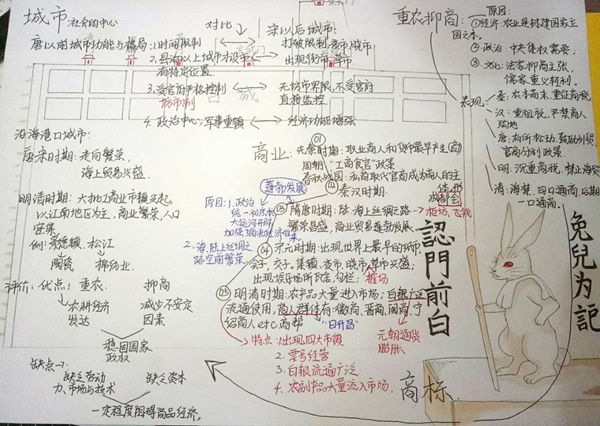 城市:社会的中心
唐以前城市功能与格局:1.时间限制
2.县治以上城市才设市
有特定位置
3.受官府严格控制
坊市制
4.政治中心,军事重镇
对比
宋以后城市:
打破限制,夜市,晓市
出现街市,草市
无坊市界限,不受官府
直接监控
经济功能增强
沿海港口城市:
唐宋时期:走向繁荣,
海上贸易兴盛
明清时期:大批工商业市镇兴起
以江南地区为主,商业繁荣,人口
密集
例:景德镇 松江
陶瓷 棉纺业
评价:优点:重农 抑商
农耕经济 减少不安定
发达 因素
稳固国家
政权
缺点→
缺乏劳动 缺乏资本
力、市场与技术
一定程度阻碍商品经济
商业:
01 先秦时期:职业商人和货币最早产生(商)
周朝:“工商食官”政策
春秋战国:私商取代官商成为商人的主体
02 秦汉时期
蓬勃发展
原因:1.政治
统一和民制
大运河开凿
2.海、陆上丝绸之
路空前繁荣
03 隋唐时期:陆、海上丝绸之路
柜坊、飞钱
繁荣昌盛,商业贸易蓬勃发展
04 宋元时期:出现世界上最早的纸币
交子,集镇、夜市、晓市、草市兴盛
出现娱乐场所瓦舍,勾栏
榷场
05 明清时期:农产品大量进入市场;白银广泛
流通使用,商人群体有:徽商、晋商、闽商,
给商人etc.商帮
“日升昌”
特点:1.出现四大市镇
2.票号经营
3.白银流通广泛
4.农副产品大量流入市场
元朝通货
膨胀
重农抑商:
原因:
①经济:农业是封建国家立
国之本
②政治:中央集权需要
③文化:法家抑商主张
儒家重义轻利
表现:
秦:农本商末,重征商税
汉:重租税,严禁商人
购地
唐:有所松动,鼓励外贸
明:沉重商税,禁止海
清:海禁,四口通商后期
一口通商
兔兒为記
認門前白
商标